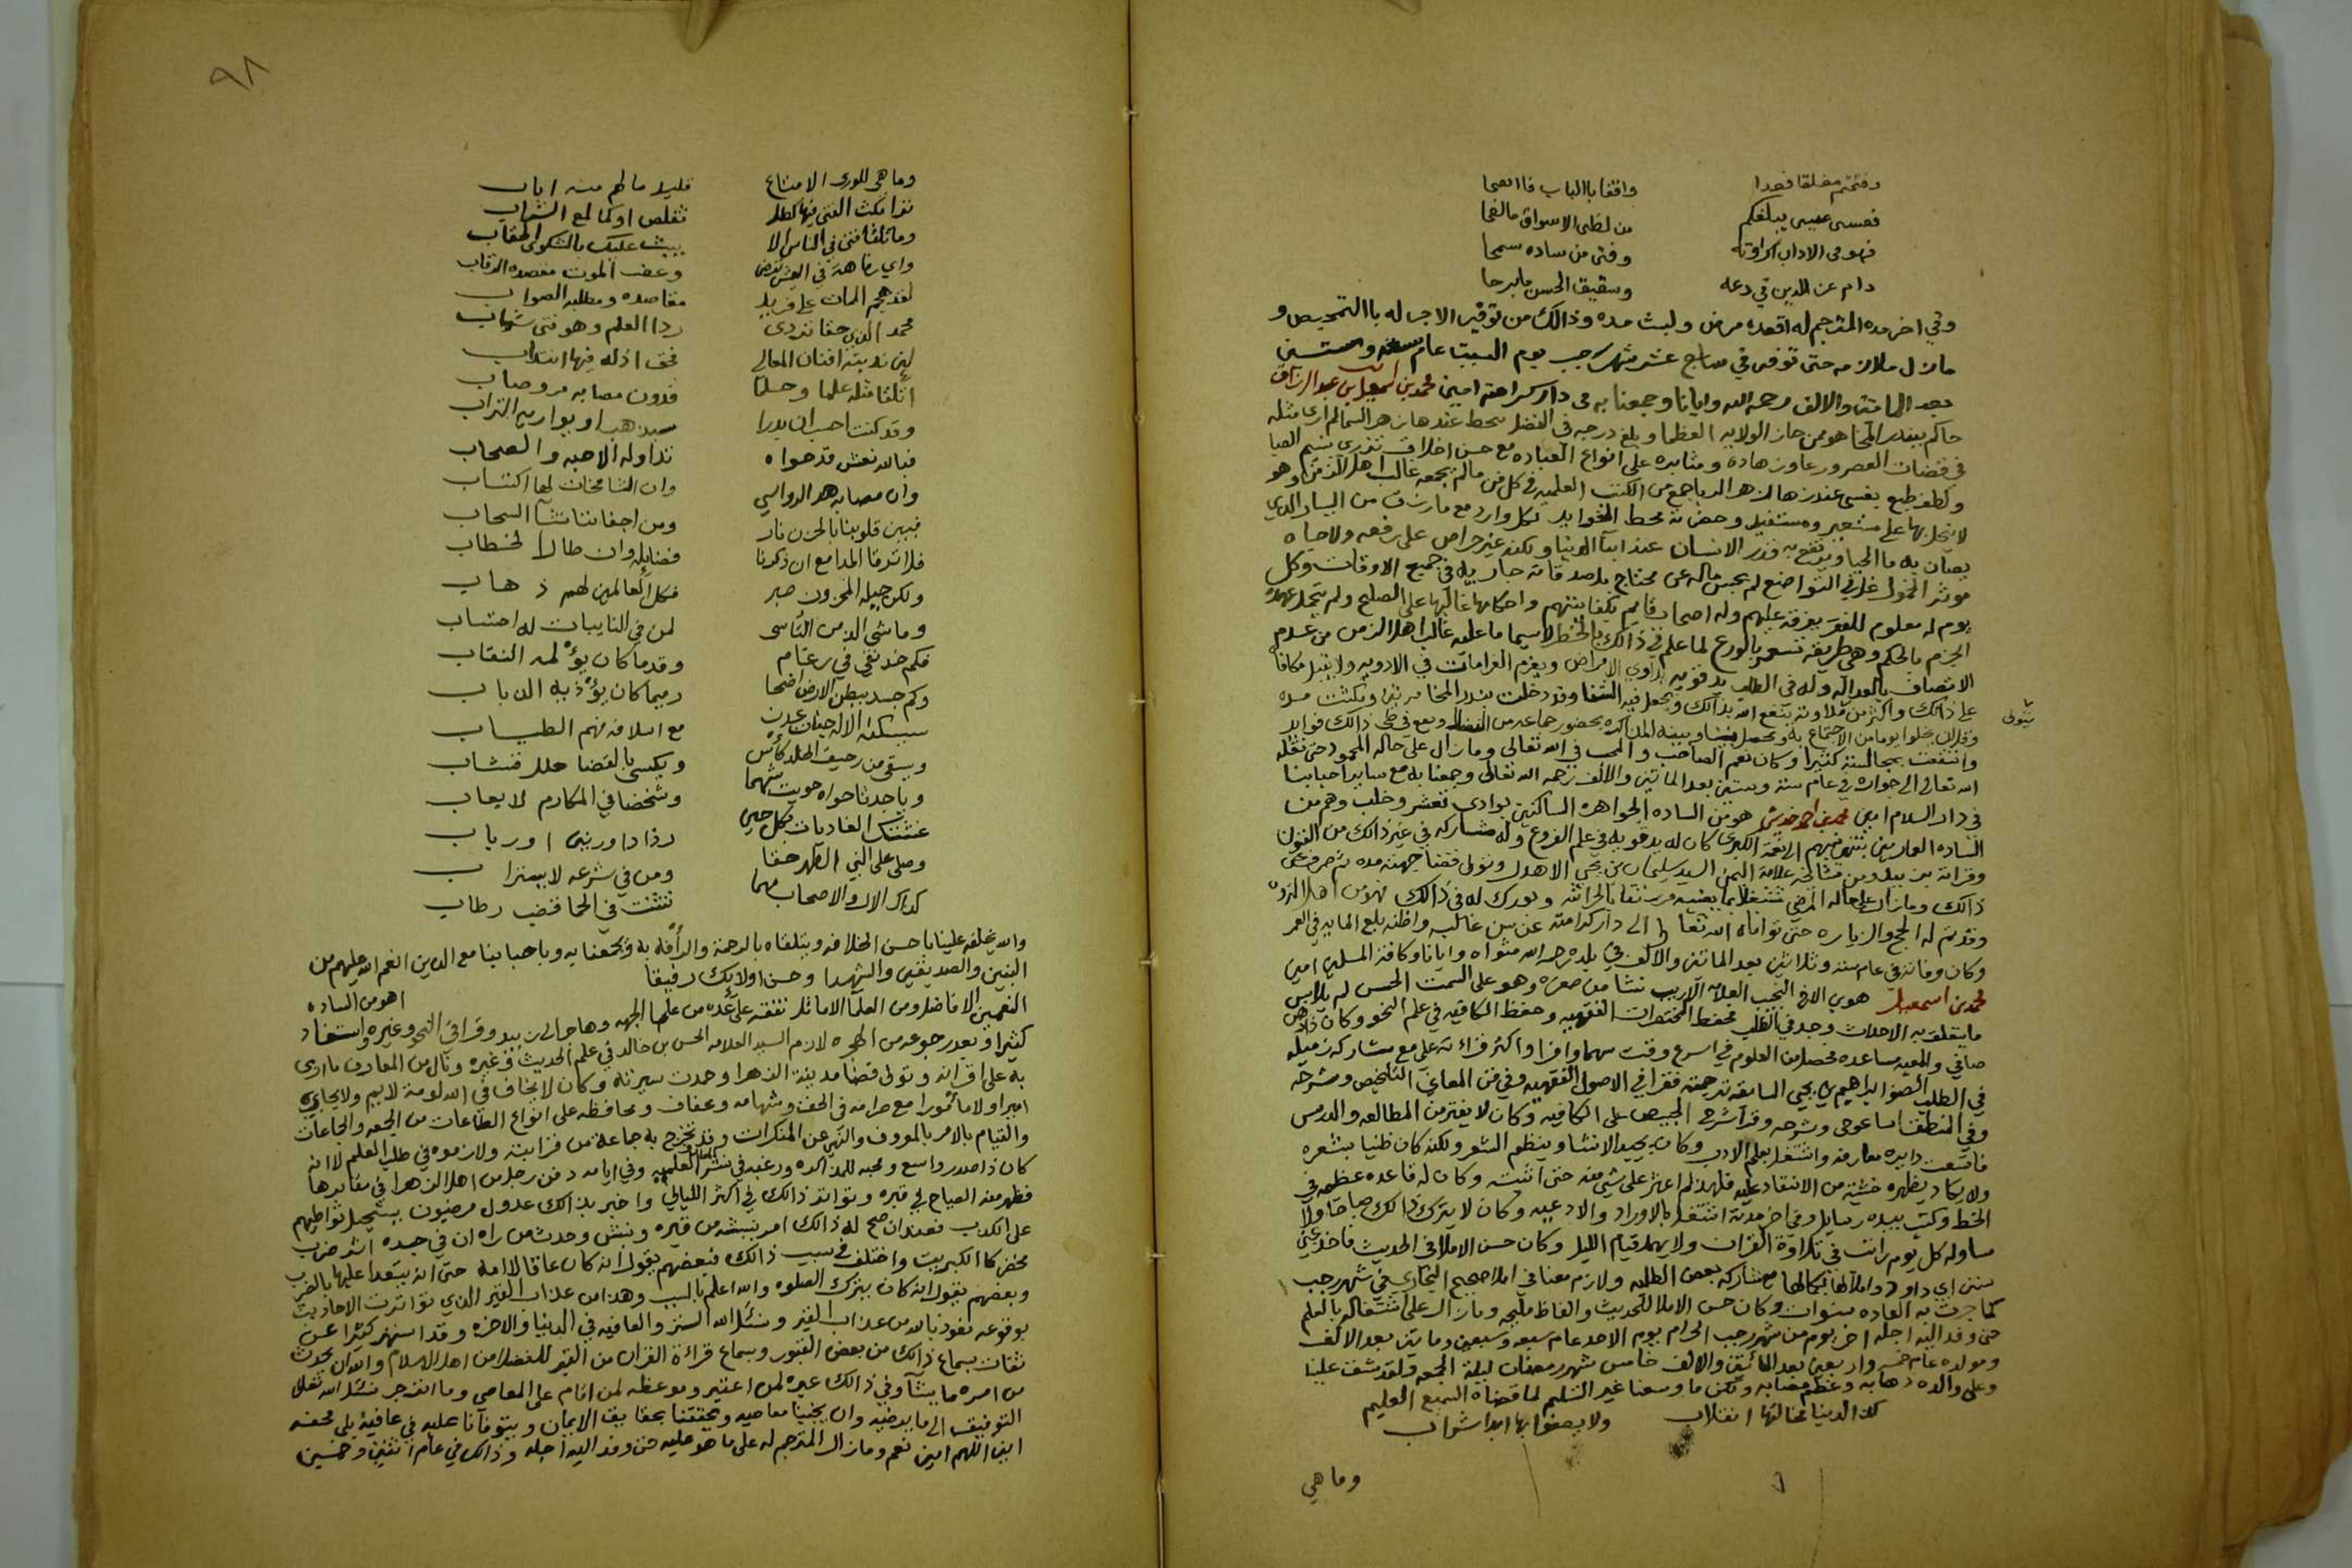 وفتحتم مغلقا فغدا واقفا بالباب فاتحا
فعسى عيسى يبلغكم من لظى الاسواق مالفحا
فهو في الاداب وفتى من ساده سمحا
دام عن الدين في دعه وشقيق الحسن مابرحا
وفي اخر مده المترجم له اقعده مرض ولبث مده وذالك من توفير الاجر له باالتمحيص و
مازال ملازمه حتى توفي في سابع عشر شهر رجب يوم السبت عام وستين
بعد الماتين والالف رحمه الله وايانا وجمعنا به في دار كرامته امين محمد بن اسمعيل بن عبد الرزاق
حاكم بيندر المخا هو ممن حاز الولايه العظما وبلغ درجه في الفضل يحط عندها زهر السما لم ارى مثله
في قضات العصر ورعا وزهاده ومثابره على انواع العباده مع حسن اخلاق تزري بنسم الصبا
ولطف طبع عندها الزهر الربا جمع من الكتب العلميه في كل فن مالم يجمعه غالب اهل الزمن وهو
لا يبخل بها على مستعير ومستفيد وحضرته محط الفوايد لكل وارد مع مارزق من اليسار الذي
يصان به ما المحيا ويرتفع به قدر الانسان عند ابنا الدنيا ولكنه غير حراص على رفعه ولا جاه
موثر الخمول في التواضع لم يحبس ماله عن محتاج بل صدقاته جاريه في جميع الاوقات وكل
يوم له معلوم للفقرا يفرقه عليهم وله اصحاب قايم بكفايتهم واحكامه غالبها على الصلح ولم يتحمل عهده
الجزم بالحكم وهي طريقه تشعر بالورع لما علم في ذالك بالخطر لاسيما ما عليه غالب اهل الزمن من عدم
الاتصاف بالعداله وله في الطب يد قويه يداوي الامراض ويغرم الغرامات في الادويه ولا يقبل مكافاه
على ذالك واكثر من وقد ينفع الله بذالك ويجعل فيه الشفا وقد دخلت بندر المخا مرتين ومكثت مده
وقل ان يخلوا يوما من الاجتماع به وتحصل بيننا وبينه المذاكره بحضور جماعه من الفضلا ويقع في طي ذالك فوايد
وانتفعت بمجالسته كثيرا وكان نعم الصاحب والمحب في الله تعالى ومازال على حاله المحمود حتى نقله
الله تعالى الى جواره في عام سته وستين بعد الماتين والالف رحمه الله تعالى وجمعنا به مع ساير احبابنا
في دار السلام امين محمد بن احمد هو من الساده الجواهره الساكنين بوادي تعشر وخلب وهم من
وفد الى الحج والزياره حتى توفاه الله تعالى الى دار كرامته عن سن عاليه واظنه بلغ المايه في العمر
وكان وفاته في عام سته وثلاثين بعد الماتين والالف في بلده رحم الله مثواه وايانا وكافة المسلمين امين
محمد بن اسمعيل هو بن الاخ النجيب العلامه الاريب نشا من صغره وهو على السمت الحسن لم يلابس
ما يتعلق به الاحداث وجد في الطلب فحفظ المختصرات الفقهيه وحفظ الكافيه في علم النحو وكان ذا ذهن
صافي والمعيه مساعده فحصل من العلوم في اسرع وقت سهما وافرا واكثر قراءته علي مع مشاركه زميله
في الطلب الصنو ابراهيم بن يحيى السابقه ترجمته فقرا في الاصول الفقهيه وفي فن المعاني التلخيص وشرحه
وفي المنطق ايساغوجي وشرحه وقرأ شرح الخبيصي على الكافيه وكان لا يفتر من المطالعه والدرس
فاتسعت دايره معارفه واشتغل بعلم الادب وكان يجيد الانشا وينظم الشعر ولكنه كان ظنينا بشعره
ولا يكاد يظهره خشيه من الانتقاد عليه فلهذا لم اعثر على شي منه حتى اثبته وكان له قاعده عظيمه في
الخط وكتب بيده رسايل وفي اخر مدته اشتغل بالاوراد والادعيه وكان لا يترك ذالك صباحا ولا
مسا وله كل يوم راتب في تلاوة القران ولا يهمل قيام الليل وكان حسن الاملا في الحديث فاخذ عني
سنن ابي داود واملآ لها بكمالها مع مشاركه بعض الطلبه ولازم معنا في املا صحيح البخاري في شهر رجب
كما جرت به العاده سنوات وكان حسن الاملا للحديث والفاظ مليحه ومازال على اشتغاله بالعلم
حتى وفد اليه اجله اخر يوم من شهر رجب الحرام يوم الاحد عام سبعه وسبعين وماتين بعد الالف
ومولده عام خمس واربعين بعد المائتين والالف خامس شهر رمضان ليله الجمعه ولقد شق علينا
وعلى والده ذهابه وعظم مصابه ولكن ما وسعنا غير التسليم لما قضاه السميع العليم
كذا الدنيا لحالتها انقلاب ولا يصفوا بها ابدا شراب
وما هي
٩٨
وما هي للورى الا متاع قليلا مالهم منه اياب
تقلص او كما لمع السراب
وما تلقا فتى في الناس الا يبث عليك بالشكوى
واي رفاهة في العيش وعضب الموت مقصده الرقاب
لقد هجم الممات على فريد مقاصده ومطلبه الصواب
محمد الذي حقا تردى ردا العلم وهو فتى شباب
لئن ندبته افنان المعالي فحق اذ له فيها انتداب
اتلقا مثله علما وحلما فدون مصابه مر وصاب
وقد كنت احسب ان بدرا سيذهب او يواريه التراب
فيالله نعش قد حواه تداوله الاحبه والصحاب
وان مصابه هد الرواسي وان الشامخات لها اكتئاب
فبين قلوبنا بالحزن نار ومن اجفاننا نشأ السحاب
فلا ترقا المدامع ان ذكرنا فضايله وان طال الخطاب
ولكن حيله المحزون صبر فكل العالمين لهم ذهاب
وما شي الذ من التاسى لمن في النايبات له احتساب
فكم خد نقي في رغام وقدما كان يؤلمه النقاب
وكم جسد ببطن الارض اضحا ربيما كان يؤذيه الذباب
سيسكنه الاله جنان عدن مع اسلافه فهم الطياب
ويسقى من رحيق الخلد كأس ويكسى بالفضا حلل قشاب
ويا جدثا حواه حويت شهما وشخصا في المكارم لا يعاب
غشتك الغاديات بكل حين رذاذا او رباب
وصلى على النبي الطهر حقا ومن في شرعه لا يسترا ب
كذاك الال والاصحاب مهما تثنت في الحما قضب رطاب
والله يخلفه علينا باحسن الخلافه ويتلقاه بالرحمة والرأفه به ويجمعنا به وباحبابنا مع الذين انعم الله عليهم من
النبيين والصديقين والشهدا وحسن اولائك رفيقا
اهو من الساده
النعميين الافاضل ومن العلمآ الاماثل تفقه على عده من علمآ الجهه وهاجر الى زبيد وقرا في النحو وغيره واستفاد
كثيرا وبعد رجوعه من الهجره لازم السيد العلامه الحسن بن خالد في علم الحديث وغيره ونال من المعارف ما اربى
به على اقرانه وتولى قضا مدينة الزهرا وحمدت سيرته وكان لا يخاف في الله لومة لايم ولا يحابي
اميرا ولا مأمورا مع صرامه في الحق وشهامه وعفاف ومحافظه على انواع الطاعات من الجمعه والجماعات
والقيام بالامر بالمعروف والنهي عن المنكرات وقد تخرج به جماعة من قرابته ولازموه في طلب العلم لاانه
كان ذا صدر واسع ومحبه للمذاكره ورغبه في نشر العلميه وفي ايامه دفن رجل من اهل الزهرا في مقابرها
فظهر منه الصياح في قبره وتواتر ذالك في اكثر الليالي واخبر بذالك عدول مرضيون يستحيل تواطيهم
على الكذب فبعد ان صح له ذالك امر بنبشه من قبره ونبش وحدث من راه ان في جسده اثر ضرب
مخضر كاالكبريت واختلف في سبب ذالك فبعضهم يقول انه كان عاقا لامه حتى انه يتعدا عليها بالضرب
وبعضهم يقول انه كان يترك الصلوه والله اعلم بالسبب وهذا من عذاب القبر الذي تواترت الاحاديث
بوقوعه نعوذ بالله من عذاب القبر ونسئل الله الستر والعافيه في الدنيا والاخره وقد اشتهر كثيرا عن
ثقات بسماع ذالك من بعض القبور وسماع قراءة القران من القبر للفضلا من اهل الاسلام والله يحدث
من امره ما يشآ وفي ذالك عبره لمن اعتبر وموعظه لمن اقام على المعاصي وما انزجر نسئل الله تعالى
التوفيق الى ما يرضيه وان يجنبنا معاصيه ويحققنا بحقايق الايمان ويتوفآنا عليه في عافية بلى محنه
امين اللهم امين نعم ومازال المترجم له على ما هو عليه حتى وفد اليه اجله وذالك في عام اثنين وخمسين